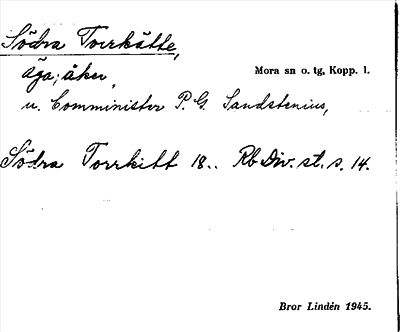 Södra Torrkätte,
äga; åker, Mora sn o. tg, Kopp. l.
u. Comminister P. G. Sandstenius,
Södra Torrkitt 18.. Rb Div. st. s. 14.
Bror Lindén 1945.